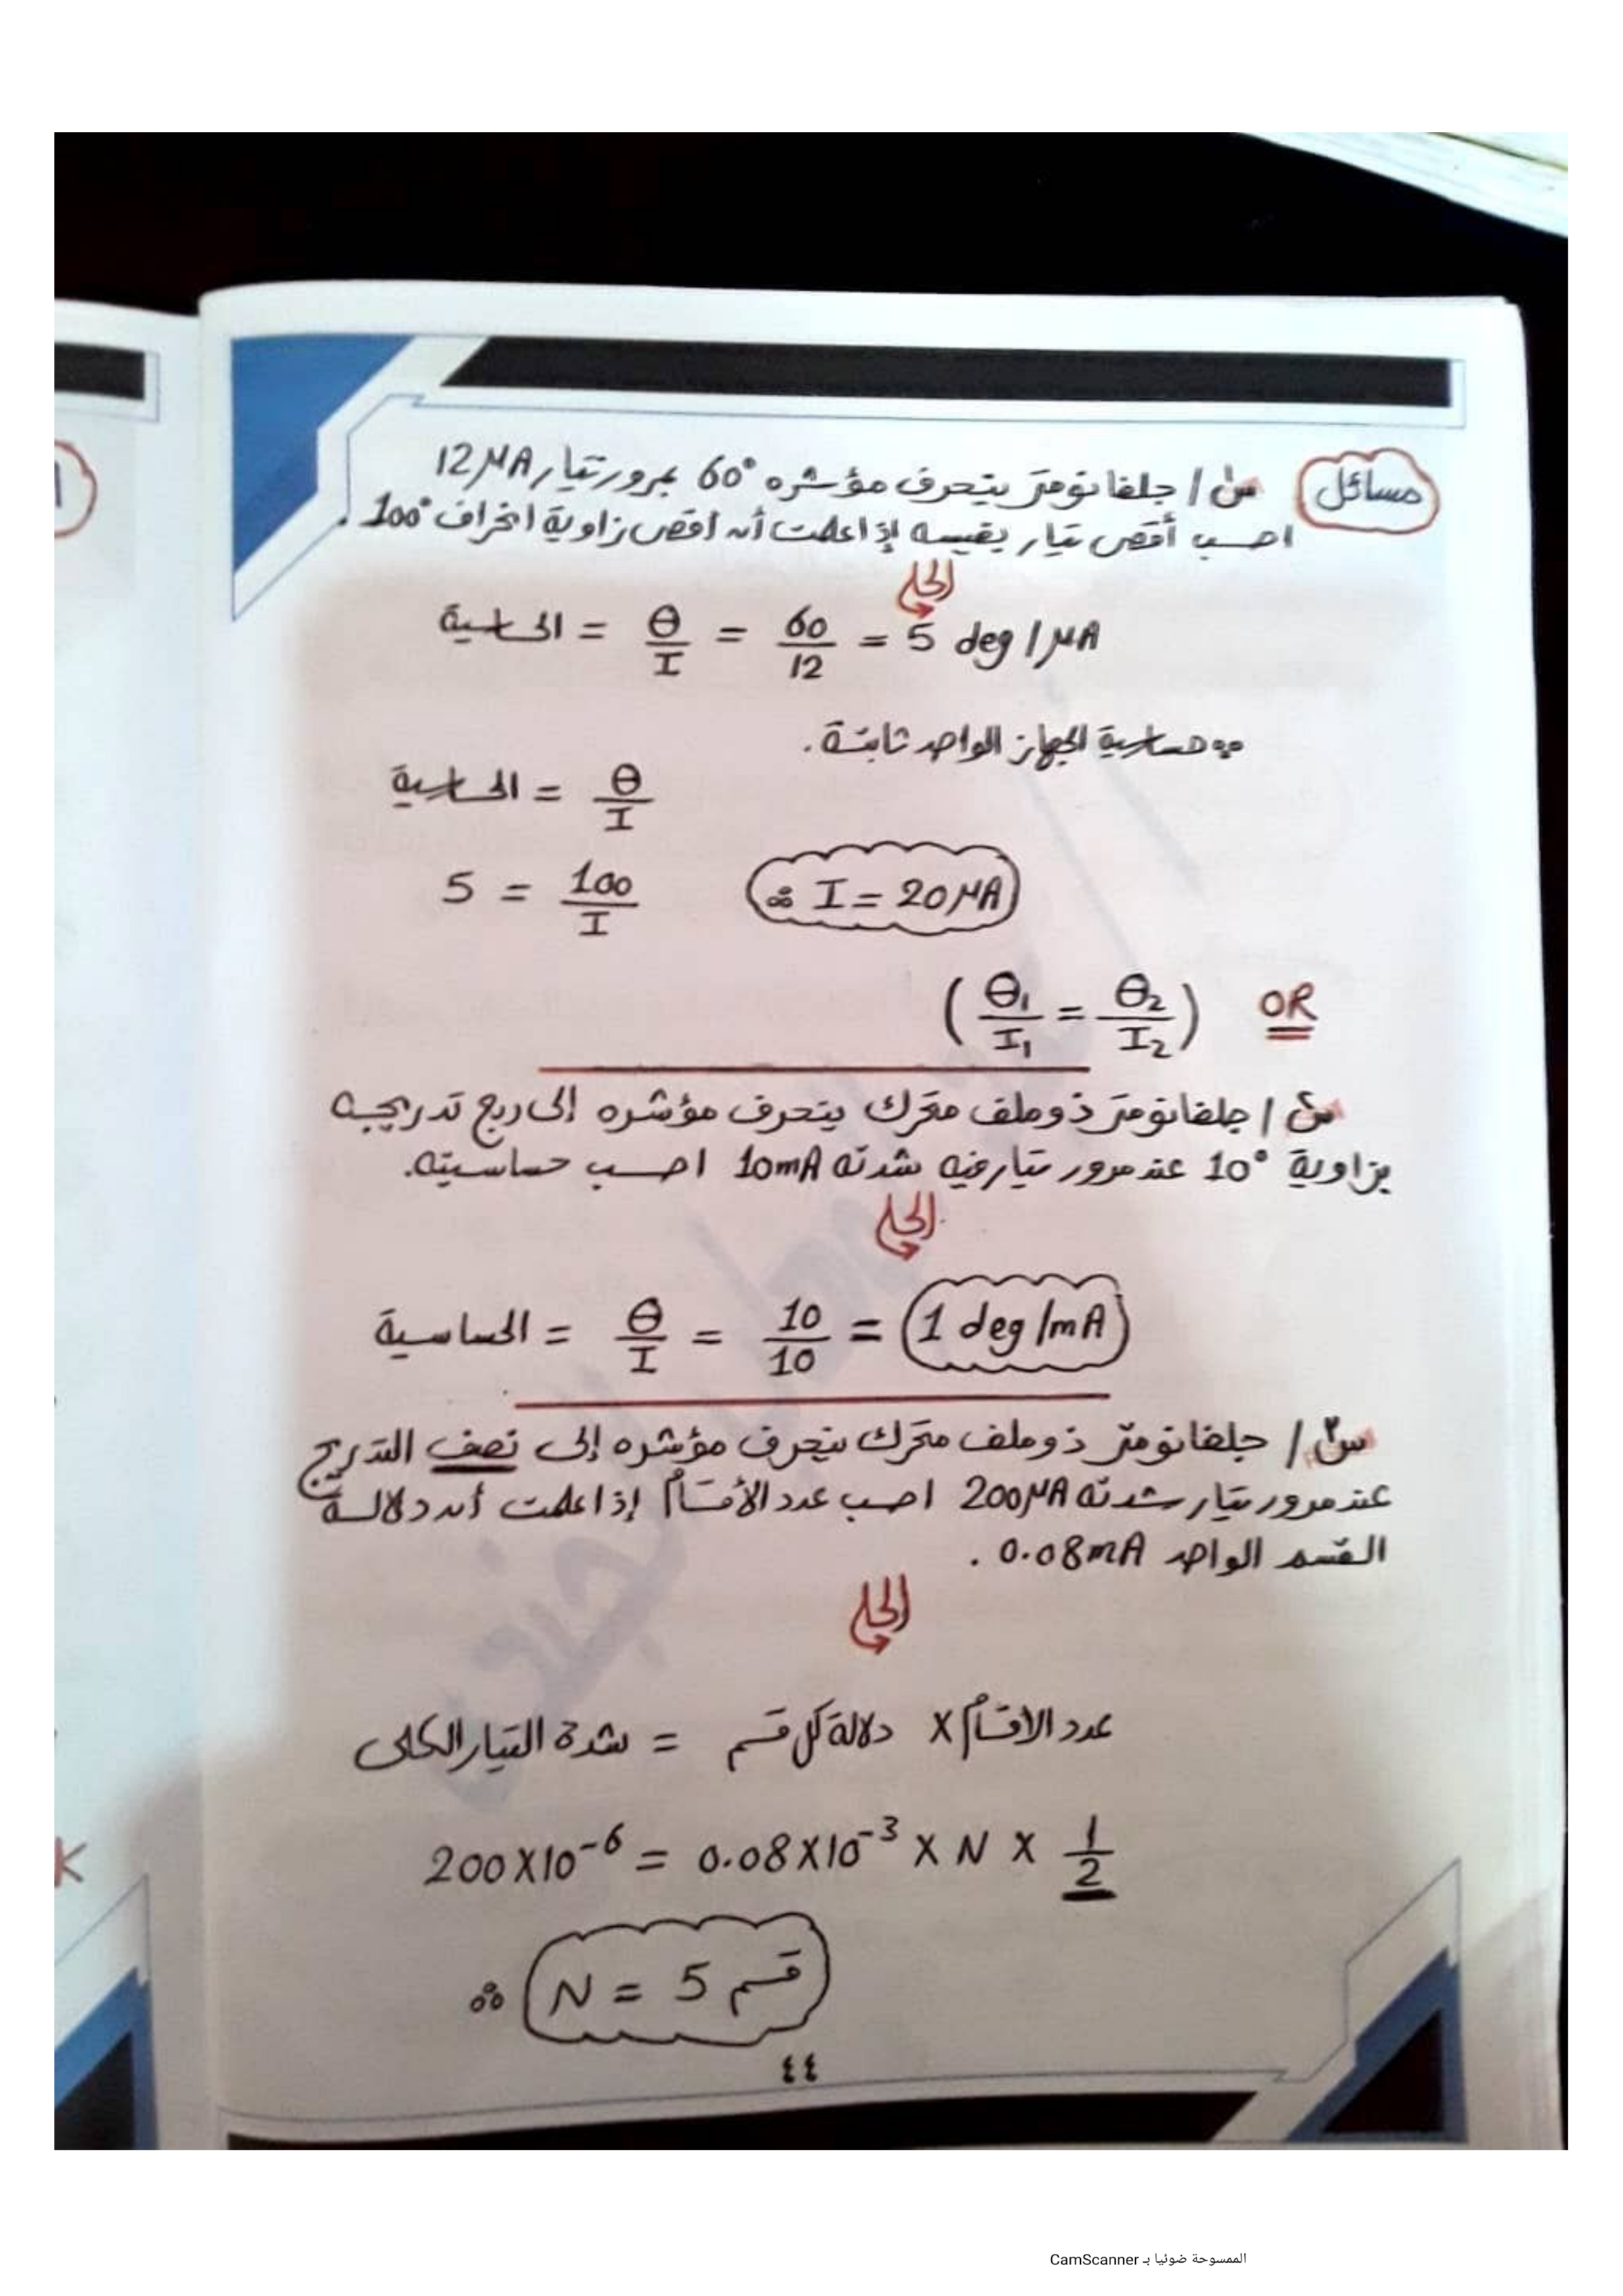 مسائل
س١/ جلفانومتر ينحرف مؤشره 60° بمرور تيار 12μA
احسب أقصى تيار يقيسه إذا علمت أن أقصى زاوية انحراف 100°.
الحل
الحساسية = θ/I = 60/12 = 5 deg/μA
∵ حساسية الجهاز الواحد ثابتة.
الحساسية = θ/I
5 = 100/I ∴ I = 20μA
OR (θ₁/I₁ = θ₂/I₂)
س٢/ جلفانومتر ذو ملف متحرك ينحرف مؤشره إلى ربع تدريجه
بزاوية 10° عند مرور تيار فيه شدته 10mA احسب حساسيته.
الحل
الحساسية = θ/I = 10/10 = 1 deg/mA
س٣/ جلفانومتر ذو ملف متحرك ينحرف مؤشره إلى نصف التدريج
عند مرور تيار شدته 200μA احسب عدد الأقسام إذا علمت أن دلالة
القسم الواحد 0.08mA.
الحل
شدة التيار الكلى = دلالة كل قسم X عدد الاقسام
200X10⁻⁶ = 0.08X10⁻³ X N X 1/2
∴ N = 5 قسم
٤٤
K
الممسوحة ضوئيا بـ CamScanner